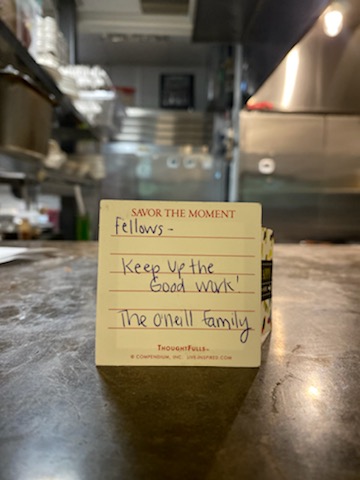 SAVOR THE MOMENT
Fellows -
Keep Up the
Good work!
The O'neill family
THOUGHTFULLS™
© COMPENDIUM, INC. LIVE-INSPIRED.COM